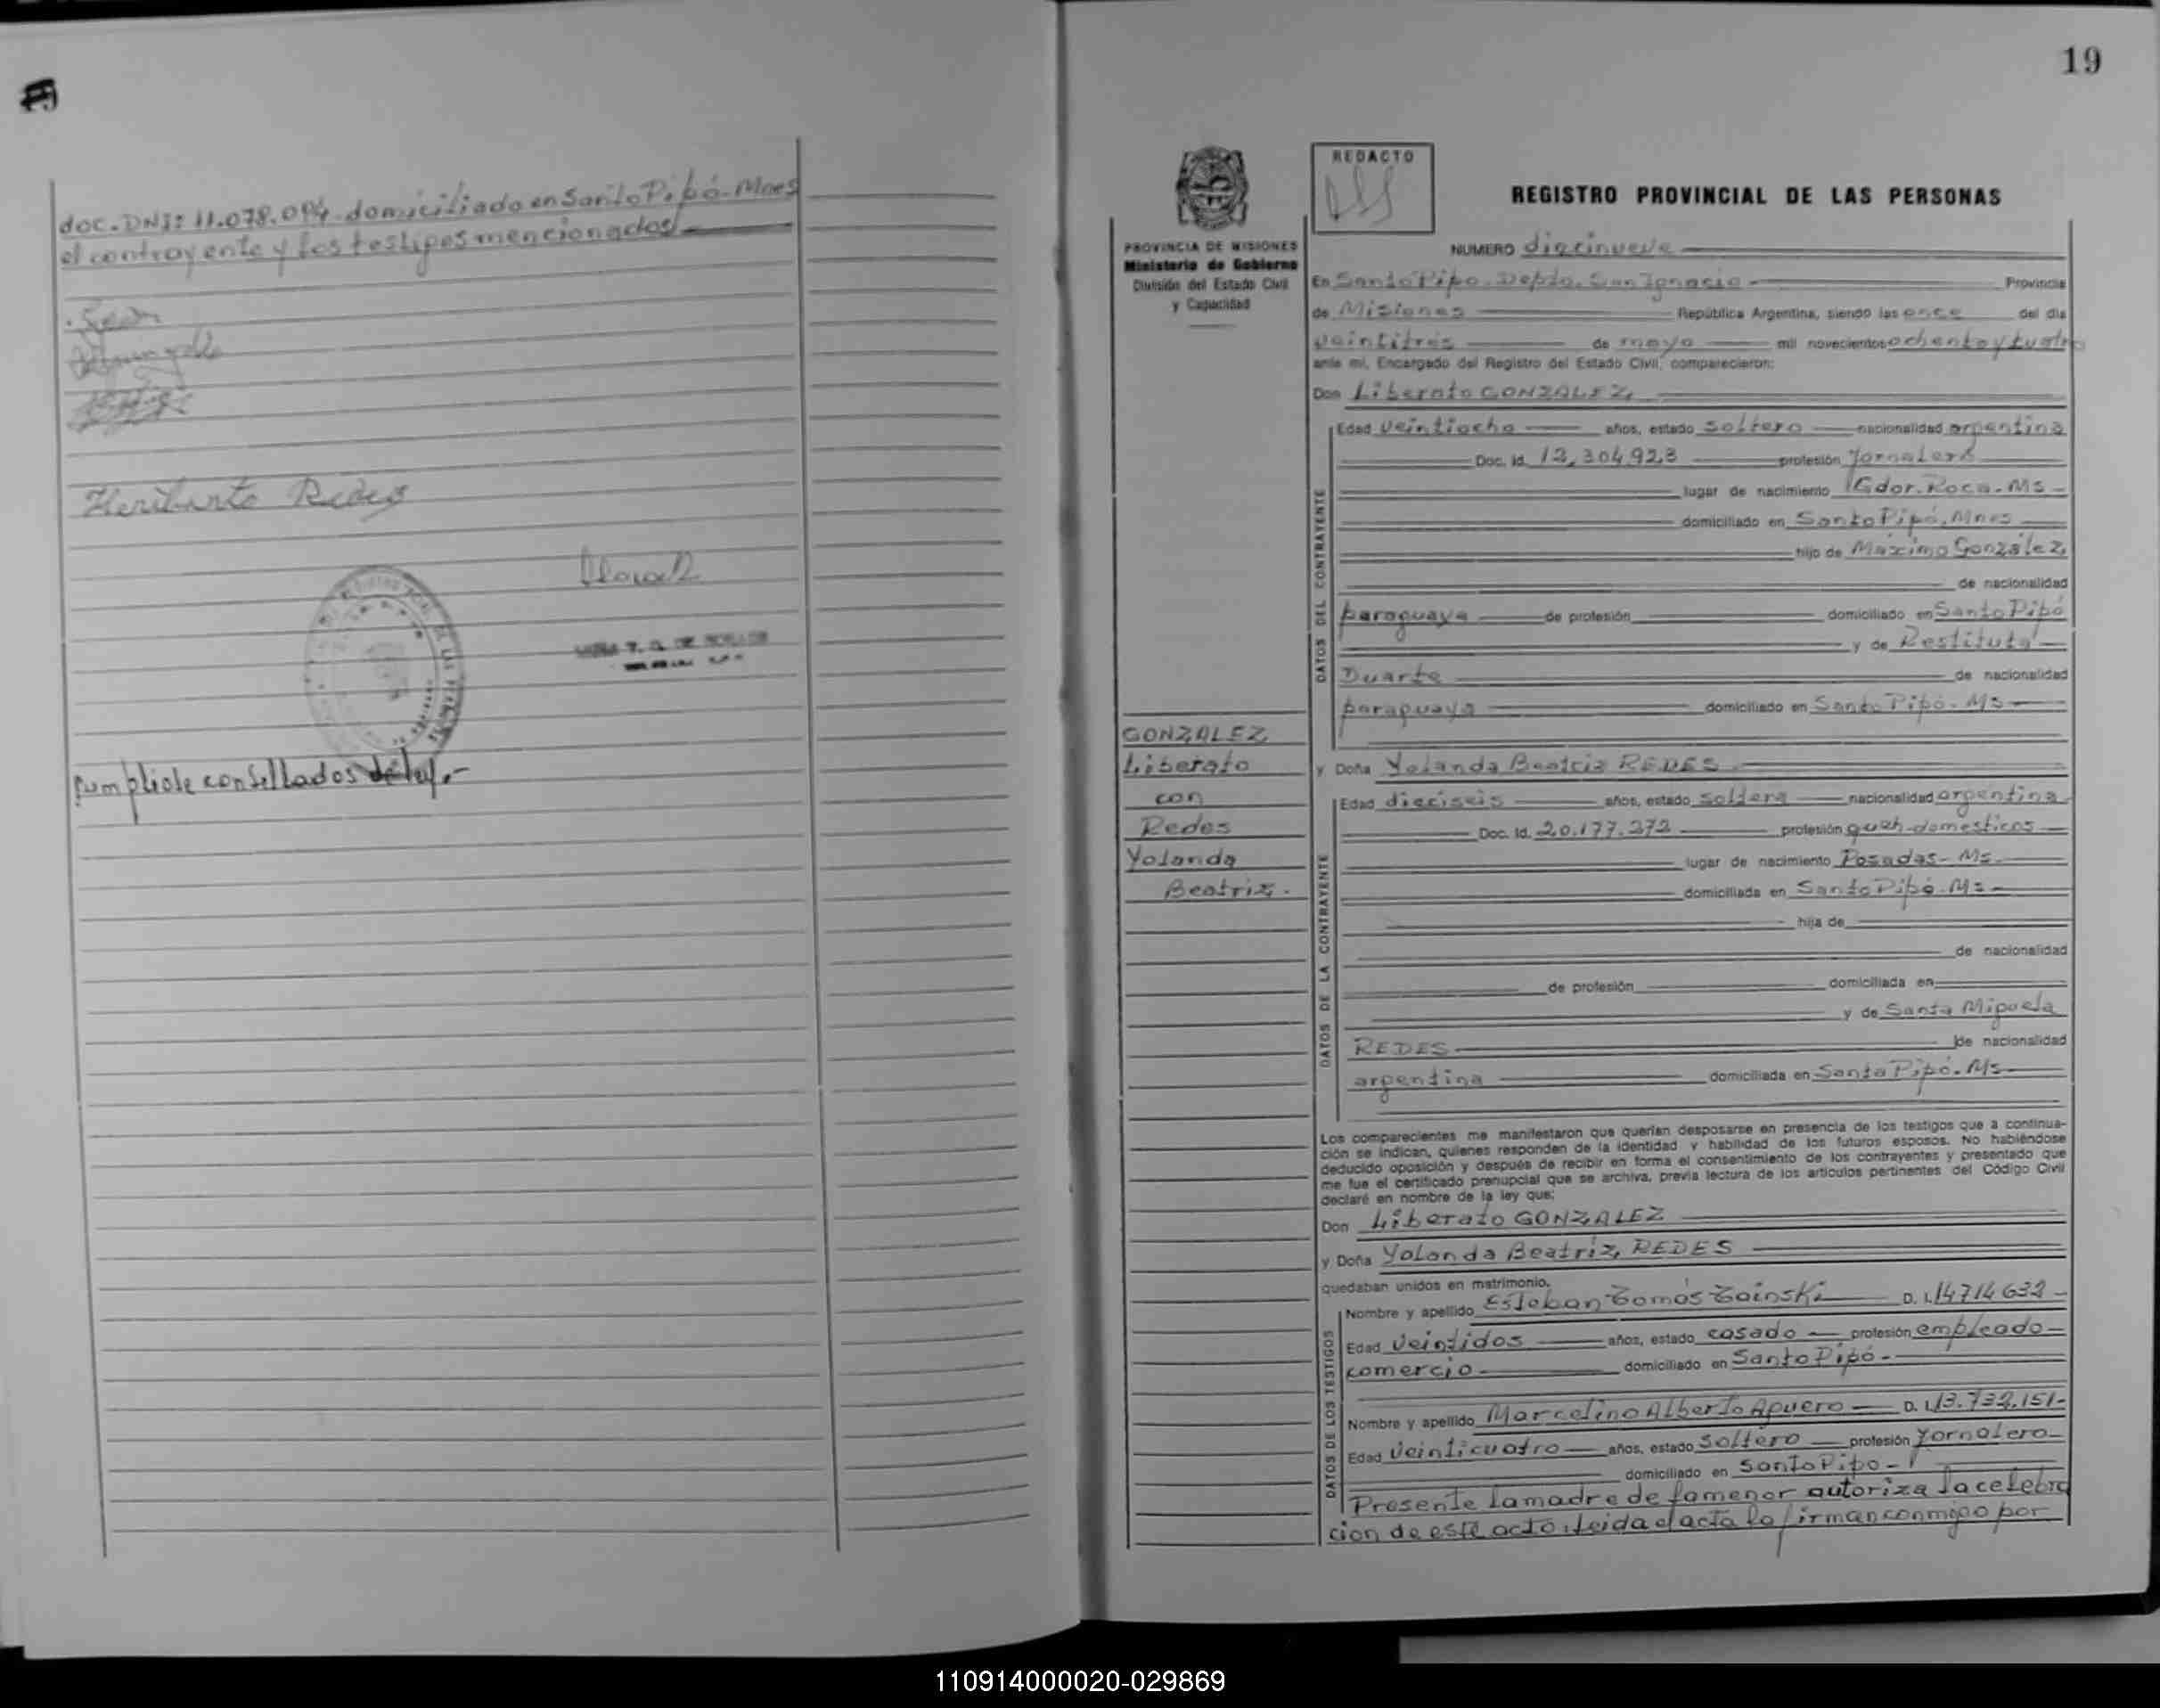 doc. DNI: 11.078.094 domiciliado en Santo Pipó - Mnes
el contrayente y los testigos mencionados
Heriberto Redes
cumpliole con sellados de ley.-
19
REDACTO
REGISTRO PROVINCIAL DE LAS PERSONAS
PROVINCIA DE MISIONES
Ministerio de Gobierno
División del Estado Civil
y Capacidad
NUMERO diecinueve
En Santo Pipo. Depto. San Ignacio - Provincia
de Misiones República Argentina, siendo las once del día
veintitres de mayo mil novecientos ochenta y cuatro
ante mí, Encargado del Registro del Estado Civil, comparecieron:
Don Liberato GONZALEZ,
DATOS DEL CONTRAYENTE
Edad veintiocho años, estado soltero nacionalidad argentina
Doc. Id. 12.304.923 profesión Jornalero
lugar de nacimiento Gdor. Roca. Ms -
domiciliado en Santo Pipó, Mnes
hijo de Máximo González,
de nacionalidad
paraguaya de profesión domiciliado en Santo Pipó
y de Restituta
Duarte de nacionalidad
paraguaya domiciliado en Santo Pipó. Ms
GONZALEZ
Liberato
con
Redes
Yolanda
Beatriz.
y Doña Yolanda Beatriz REDES
DATOS DE LA CONTRAYENTE
Edad dieciseis años, estado soltera nacionalidad argentina
Doc. Id. 20.177.272 profesión queh-domesticos
lugar de nacimiento Posadas - Ms.
domiciliada en Santo Pipó. Ms
hija de
de nacionalidad
de profesión domiciliada en
y de Santa Miguela
REDES de nacionalidad
argentina domiciliada en Santo Pipó. Ms
Los comparecientes me manifestaron que querían desposarse en presencia de los testigos que a continua-
ción se indican, quienes responden de la identidad y habilidad de los futuros esposos. No habiéndose
deducido oposición y después de recibir en forma el consentimiento de los contrayentes y presentado que
me fue el certificado prenupcial que se archiva, previa lectura de los artículos pertinentes del Código Civil
declaré en nombre de la ley que:
Don Liberato GONZALEZ
y Doña Yolanda Beatriz, REDES
quedaban unidos en matrimonio.
DATOS DE LOS TESTIGOS
Nombre y apellido Esteban Tomás Zainski D. I. 14714632 -
Edad veintidos años, estado casado profesión empleado
comercio domiciliado en Santo Pipó -
Nombre y apellido Marcelino Alberto Aguero D. I. 13.732.151-
Edad veinticuatro años, estado Soltero profesión Jornalero
domiciliado en Santo Pipo -
Presente la madre de la menor autoriza la celebra
cion de este acto. Leida el acta la firman conmigo por
110914000020-029869